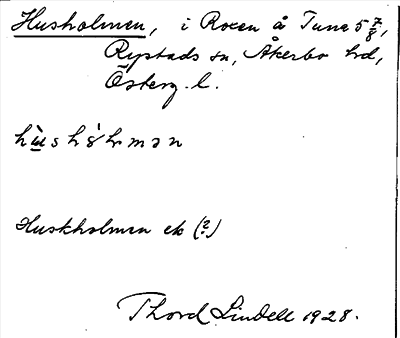 Husholmen, i Roxen å Tuna 5 7/8,
Rystads sn, Åkerbo hd,
Österg. l.
Huskholmen ek (?)
Thord Lindell 1928.